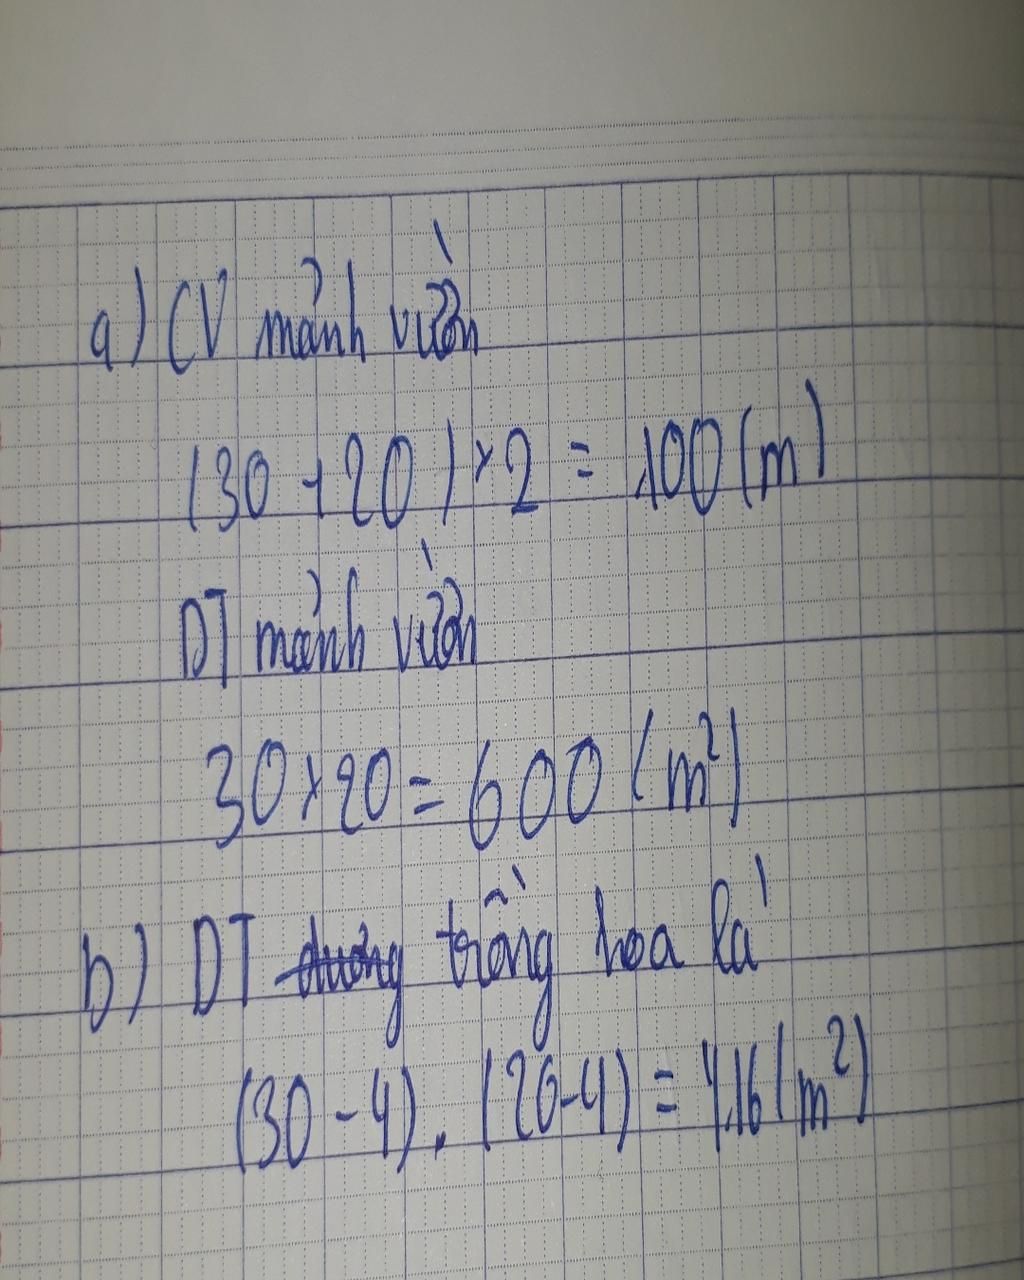 a) CV mảnh vườn
(30 + 20) × 2 = 100 (m)
DT mảnh vườn
30 × 20 = 600 (m²)
b) DT trồng hoa là
(30 - 4) . (20 - 4) = 416 (m²)